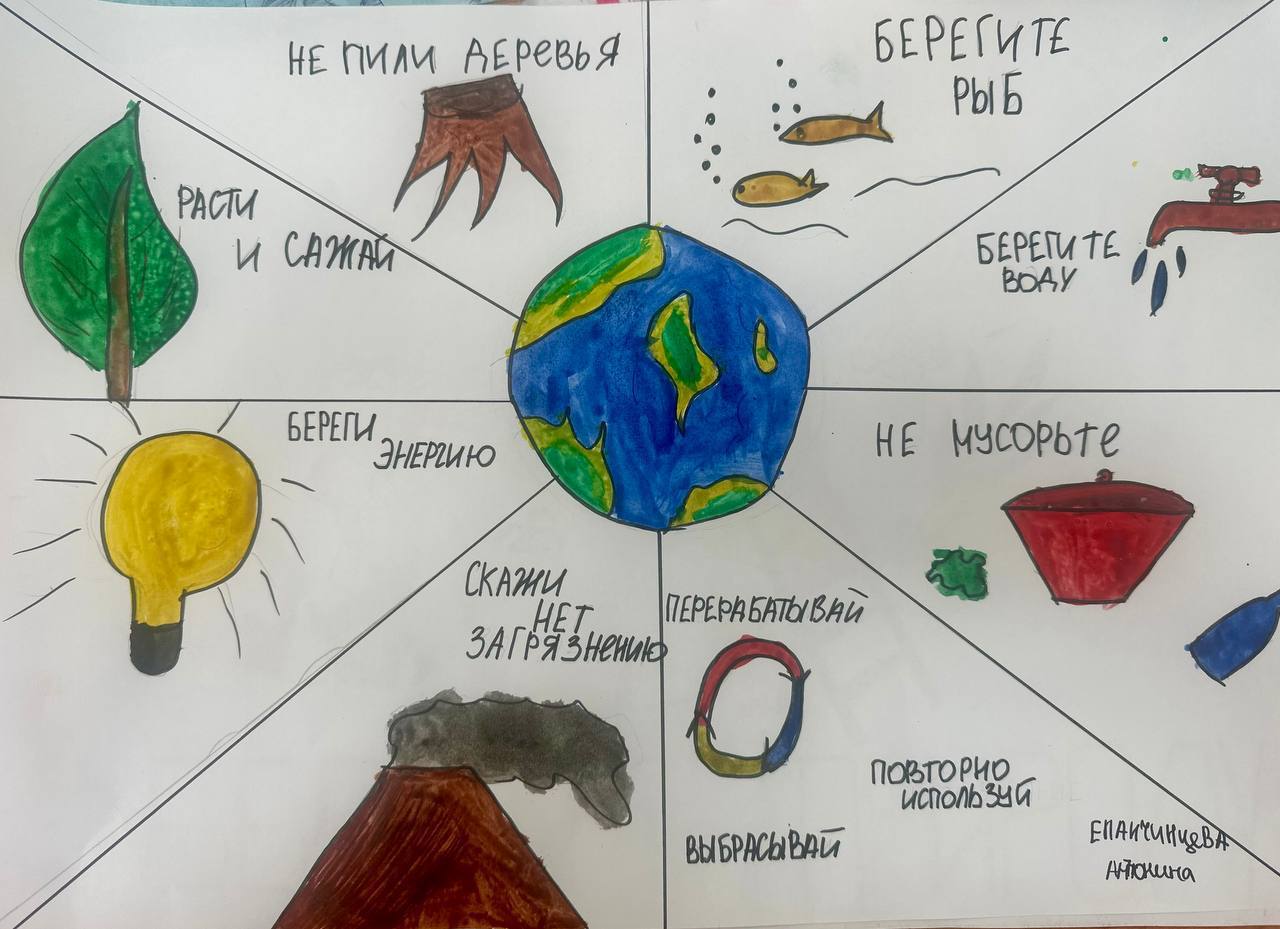 НЕ ПИЛИ ДЕРЕВЬЯ
БЕРЕГИТЕ
РЫБ
РАСТИ
И САЖАЙ
БЕРЕГИТЕ
ВОДУ
БЕРЕГИ
ЭНЕРГИЮ
НЕ МУСОРЬТЕ
СКАЖИ
НЕТ
ЗАГРЯЗНЕНИЮ
ПЕРЕРАБАТЫВАЙ
ПОВТОРНО
ИСПОЛЬЗУЙ
ВЫБРАСЫВАЙ
ЕПАНЧИНЦЕВА
Антонина